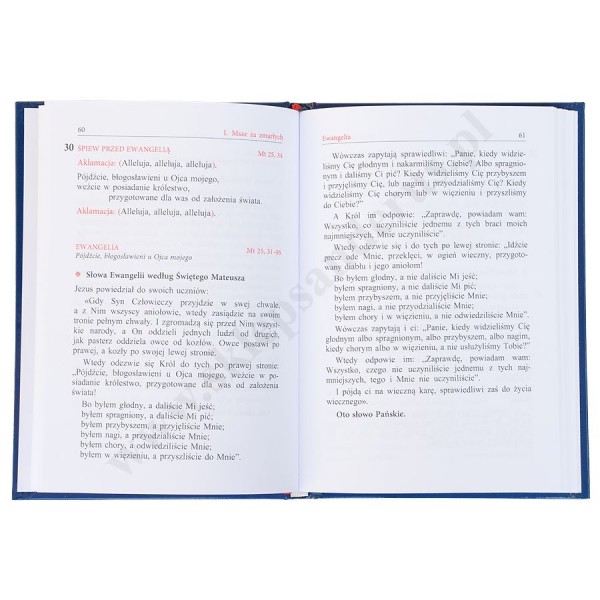 60
I. Msze za zmarłych
30 ŚPIEW PRZED EWANGELIĄ
Mt 25, 34
Aklamacja: (Alleluja, alleluja, alleluja).
Pójdźcie, błogosławieni u Ojca mojego,
weźcie w posiadanie królestwo,
przygotowane dla was od założenia świata.
Aklamacja: (Alleluja, alleluja, alleluja).
EWANGELIA
Mt 25, 31-46
Pójdźcie, błogosławieni u Ojca mojego
Słowa Ewangelii według Świętego Mateusza
Jezus powiedział do swoich uczniów:
„Gdy Syn Człowieczy przyjdzie w swej chwale,
a z Nim wszyscy aniołowie, wtedy zasiądzie na swoim
tronie pełnym chwały. I zgromadzą się przed Nim wszyst-
kie narody, a On oddzieli jednych ludzi od drugich,
jak pasterz oddziela owce od kozłów. Owce postawi po
prawej, a kozły po swojej lewej stronie.
Wtedy odezwie się Król do tych po prawej stronie:
„Pójdźcie, błogosławieni u Ojca mojego, weźcie w po-
siadanie królestwo, przygotowane dla was od założenia
świata!
Bo byłem głodny, a daliście Mi jeść;
byłem spragniony, a daliście Mi pić;
byłem przybyszem, a przyjęliście Mnie;
byłem nagi, a przyodzialiście Mnie;
byłem chory, a odwiedziliście Mnie;
byłem w więzieniu, a przyszliście do Mnie”.
Ewangelia
61
Wówczas zapytają sprawiedliwi: „Panie, kiedy widzie-
liśmy Cię głodnym i nakarmiliśmy Ciebie? Albo spragnio-
nym i daliśmy Ci pić? Kiedy widzieliśmy Cię przybyszem
i przyjęliśmy Cię, lub nagim i przyodzialiśmy Cię? Kiedy
widzieliśmy Cię chorym lub w więzieniu i przyszliśmy
do Ciebie?”
A Król im odpowie: „Zaprawdę, powiadam wam:
Wszystko, co uczyniliście jednemu z tych braci moich
najmniejszych, Mnie uczyniliście”.
Wtedy odezwie się i do tych po lewej stronie: „Idźcie
precz ode Mnie, przeklęci, w ogień wieczny, przygoto-
wany diabłu i jego aniołom!
Bo byłem głodny, a nie daliście Mi jeść;
byłem spragniony, a nie daliście Mi pić;
byłem przybyszem, a nie przyjęliście Mnie;
byłem nagi, a nie przyodzialiście Mnie;
byłem chory i w więzieniu, a nie odwiedziliście Mnie”.
Wówczas zapytają i ci: „Panie, kiedy widzieliśmy Cię
głodnym albo spragnionym, albo przybyszem, albo nagim,
kiedy chorym albo w więzieniu, a nie usłużyliśmy Tobie?”
Wtedy odpowie im: „Zaprawdę, powiadam wam:
Wszystko, czego nie uczyniliście jednemu z tych naj-
mniejszych, tego i Mnie nie uczyniliście”.
I pójdą ci na wieczną karę, sprawiedliwi zaś do życia
wiecznego».
Oto słowo Pańskie.